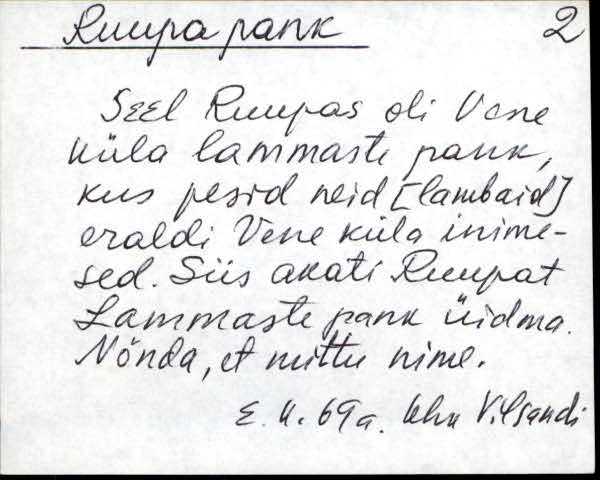 Ruupa pank 2
Seel Ruupas oli Vene
küla lammaste pank,
kus pesid neid [lambaid]
eraldi Vene küla inime-
sed. Siis akati Ruupat
Lammaste pank üidma.
Nõnda, et mittu nime.
E. U. 69a. Khk Vilsandi